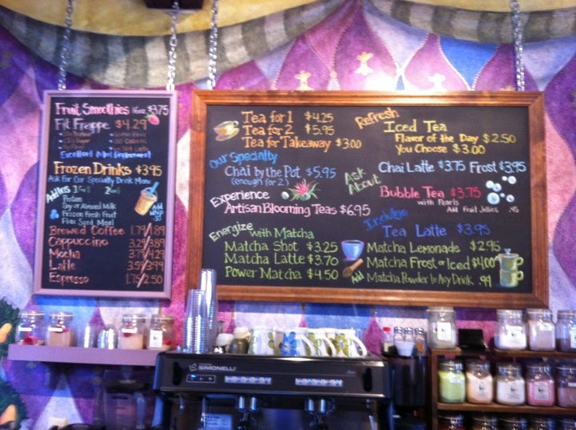 Fruit Smoothies $3.75
Fit Frappe $4.29
Excellent Meal Replacement
Frozen Drinks $3.95
Ask for Our Specialty Drink Menu
Protein
Soy or Almond Milk
Frozen Fresh Fruit
Flax Seed Meal
Brewed Coffee 1.79 1.89
Cappuccino 3.29 3.89
Mocha 3.79 4.29
Latte 3.59 3.99
Espresso 1.75 2.50
Tea for 1 $4.25
Tea for 2 $5.95
Tea for Takeaway $3.00
Our Specialty
Chai by the Pot $5.95
(enough for 2)
Experience
Artisan Blooming Teas $6.95
Energize with Matcha
Matcha Shot $3.25
Matcha Latte $3.70
Power Matcha $4.50
Refresh
Iced Tea
Flavor of the Day $2.50
You Choose $3.00
Chai Latte $3.75 Frost $3.95
Ask About
Bubble Tea $3.75
with Pearls
Add Fruit Jellies
Indulge
Tea Latte $3.95
Matcha Lemonade $2.95
Matcha Frost or Iced $4.00
Add Matcha Powder to Any Drink .99
SIMONELLI